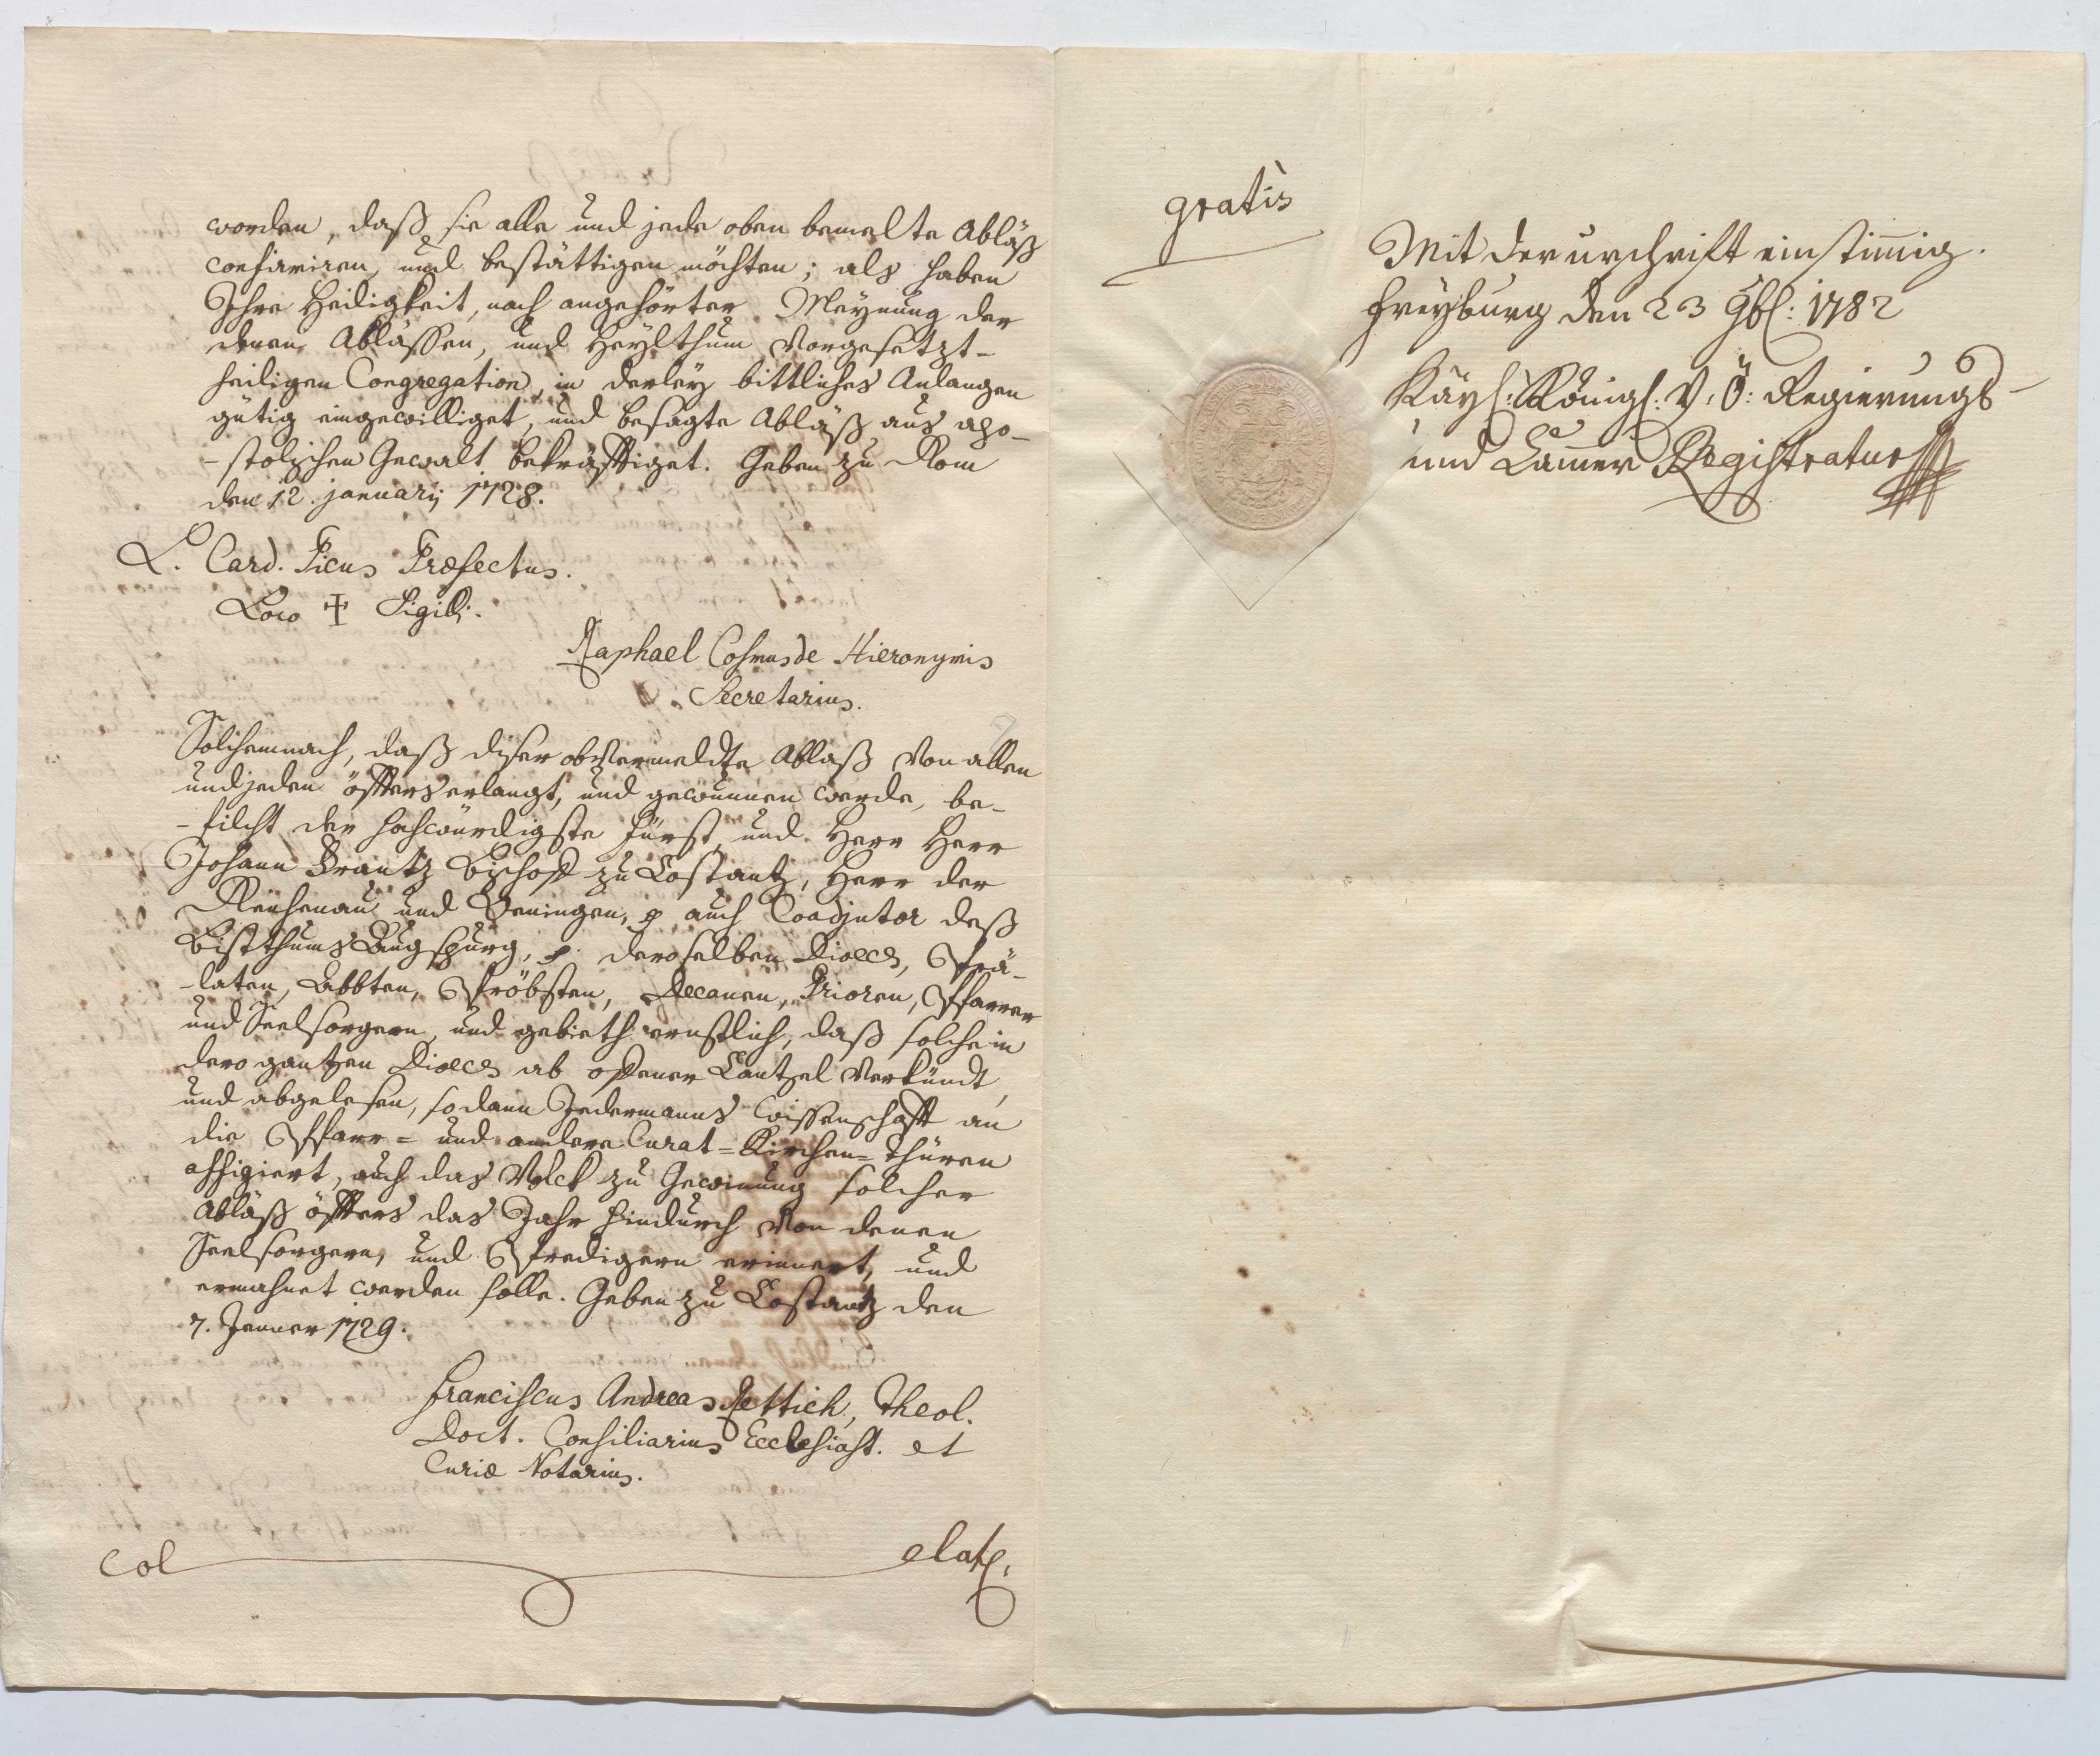 worden, daß sie alle und jede oben bemelte Abläß
confirmiren, und bestättigen möchten; als haben
Ihre Heiligkeit, nach angehörter Meynung der
denen Ablässen, und Heylthum Vorgesetzt-
heiligen Congregation, in derley bittliches Anlangen
gütig eingewilliget, und besagte Abläß aus apo-
-stolischen Gewalt bekräfftiget. Geben zu Rom
den 12. januarij 1728.
L. Card. Picus Præfectus.
Loco ✝ Sigilli.
Raphael Cosmus de Hieronymis
Secretarius.
Solchemnach, daß diser obvermeldte Ablaß Von allen
und jeden öffters erlangt, und gewunnen werde, be-
-filcht der hochwürdigste Fürst, und Herr Herr
Johann Frantz Bischoff zu Costantz, Herr der
Reichenau und Oeningen, p auch Coadjutor deß
Bistthums Augspurg, p. deroselben Dioeces, Prä-
-laten, Äbbten, Pröbsten, Decanen, Prioren, Pfarrer
und Seelsorgern, und gebieth ernstlich, daß solche in
dero gantzen Dioeces ab offener Cantzel Verkündt,
und abgelesen, so dann Jedermanns Wissenschafft an
die Pfarr= und andere Curat= Kirchen= Thüren
affigiert, auch das Volck zu Gewinnung solcher
Abläß öffters das Jahr hindurch Von denen
Seelsorgern, und Predigern erinnert, und
ermahnet werden solle. Geben zu Costantz den
7. Jenner 1729.
Franciscus Andreas Rettich, Theol.
Doct. Consiliarius Ecclesiast. et
Curiæ Notarius.
Col elat.
gratis
Mit der urschrift einstimig.
Freyburg den 23 9bl: 1782
Kayl: Königl: V: Ö: Regierungs-
und Camer Registratur